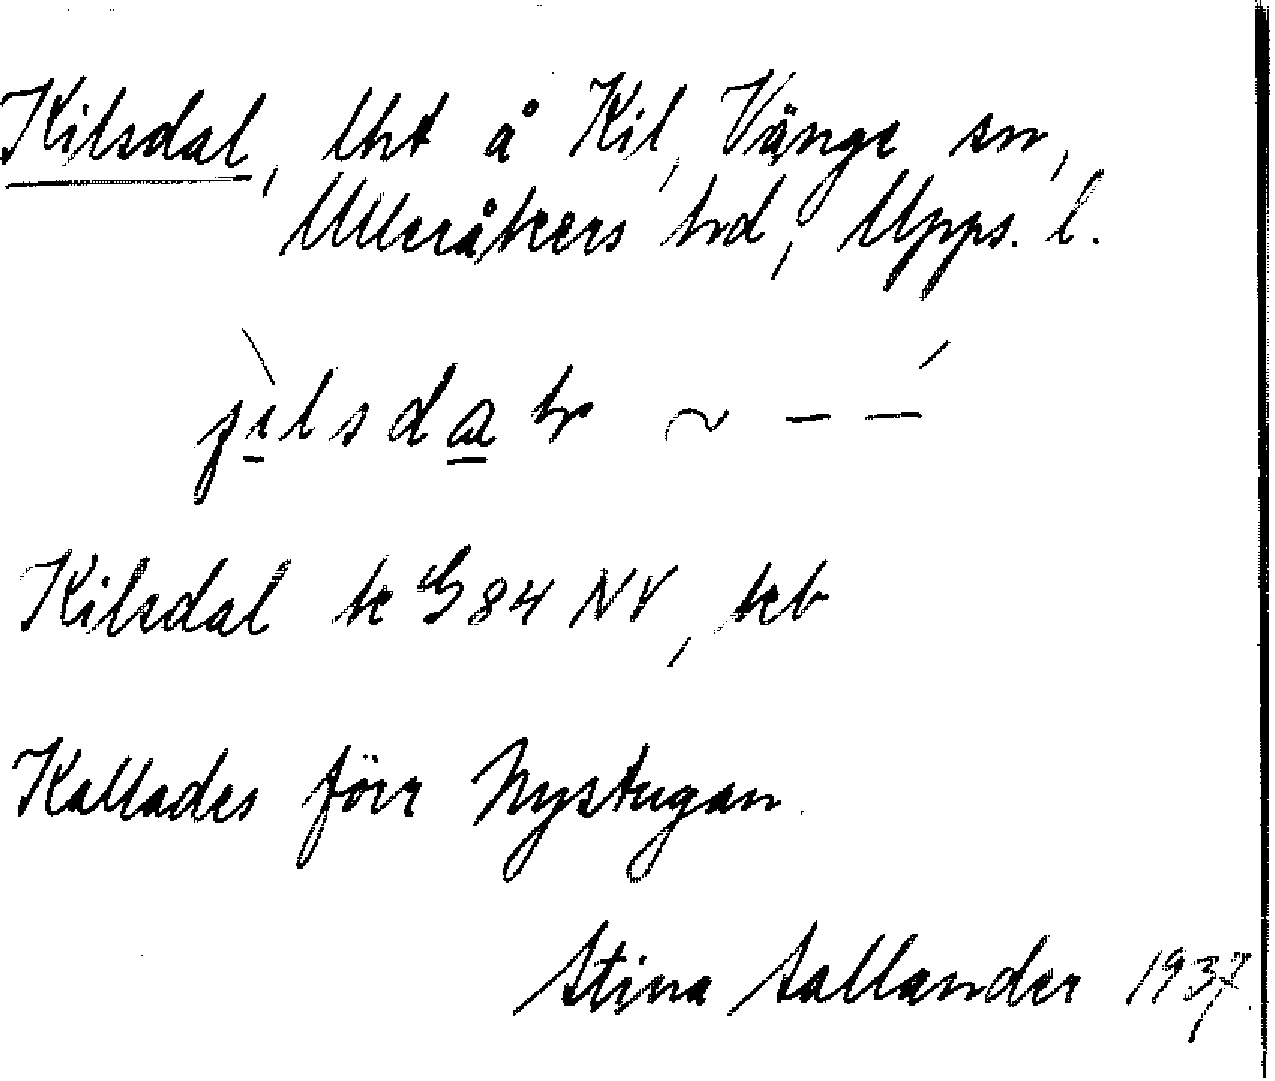 Kilsdal, lht å Kil, Vänge sn,
Ulleråkers hd, Upps. l.
~ – –
Kilsdal k G 84 NV, kb
Kallades förr Nystugan.
Stina Sallander 1937.